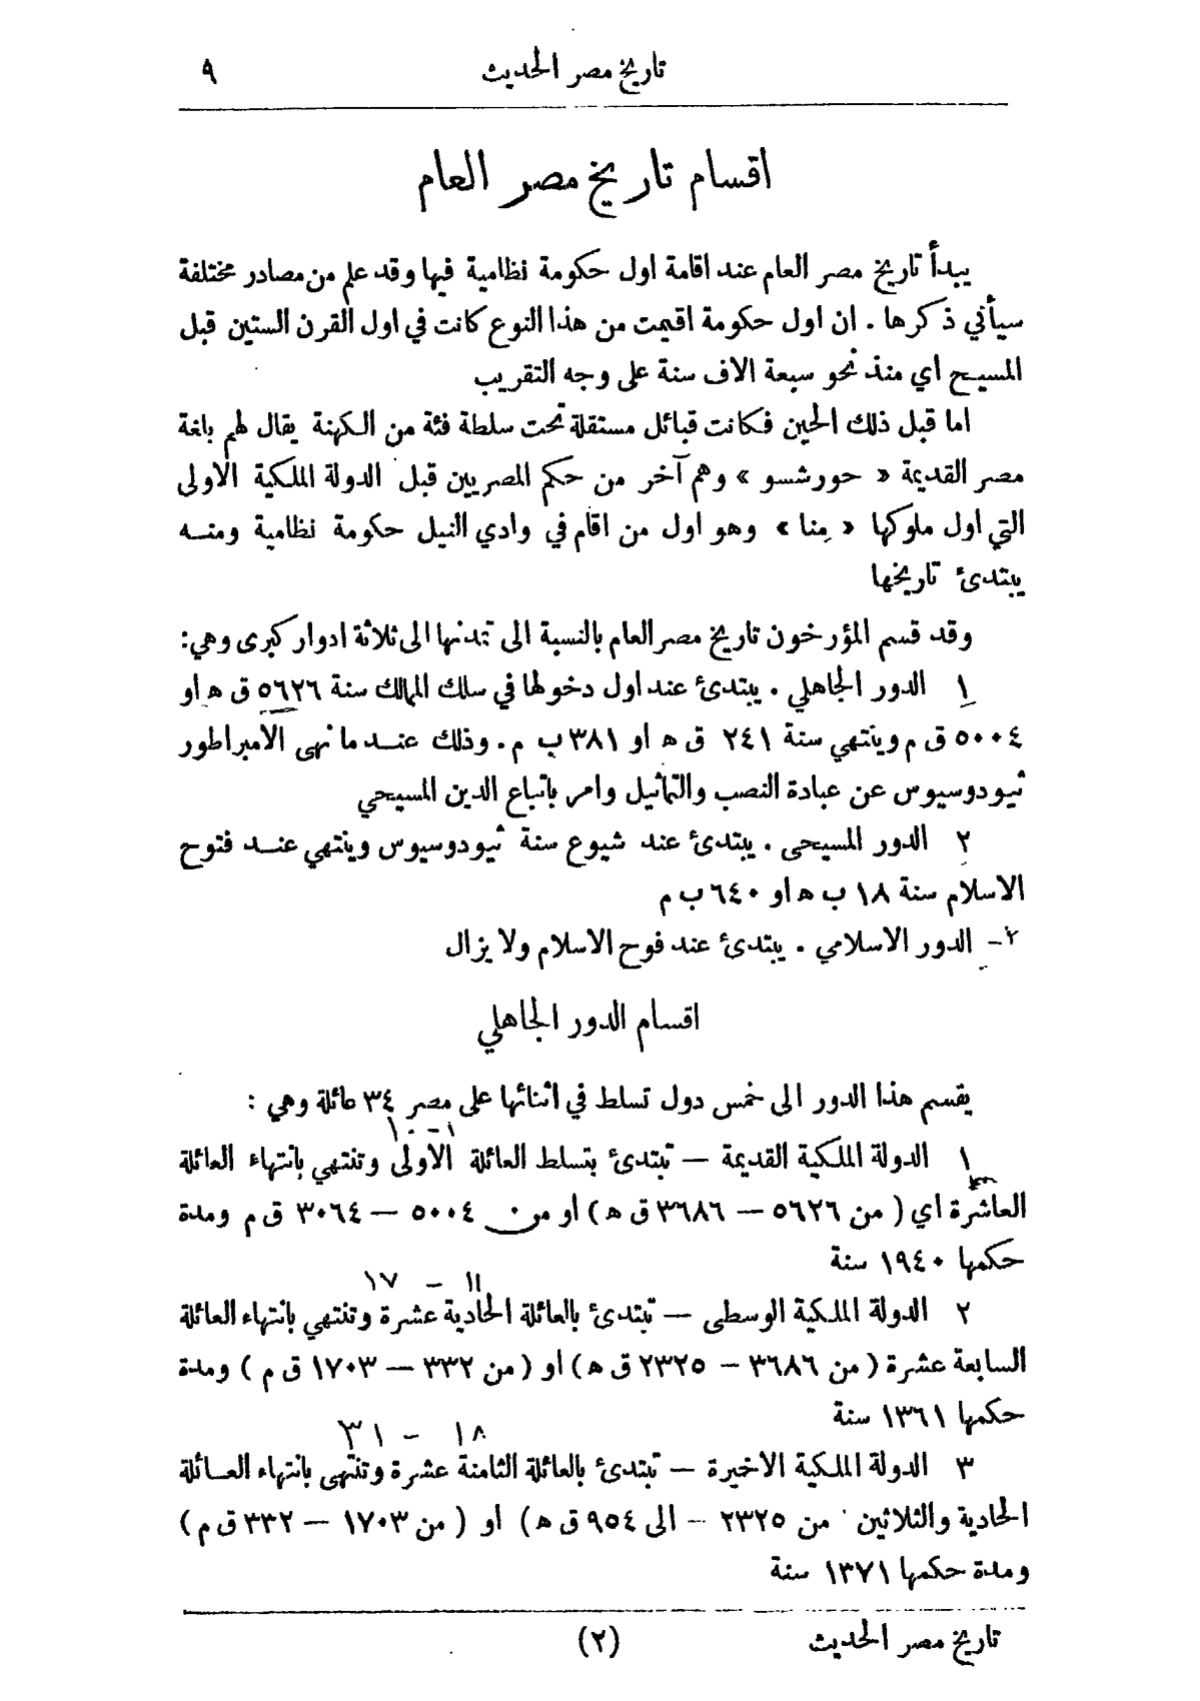 تاريخ مصر الحديث ٩
اقسام تاريخ مصر العام
يبدأ تاريخ مصر العام عند اقامة اول حكومة نظامية فيها وقد علم من مصادر مختلفة
سيأتي ذكرها . ان اول حكومة اقيمت من هذا النوع كانت في اول القرن الستين قبل
المسيح اي منذ نحو سبعة الاف سنة على وجه التقريب
اما قبل ذلك الحين فكانت قبائل مستقلة تحت سلطة فئة من الكهنة يقال لهم بلغة
مصر القديمة « حورشسو » وهم آخر من حكم المصريين قبل الدولة الملكية الاولى
التي اول ملوكها « مِنا » وهو اول من اقام في وادي النيل حكومة نظامية ومنه
يبتدئ تاريخها
وقد قسم المؤرخون تاريخ مصر العام بالنسبة الى تمدنها الى ثلاثة ادوار كبرى وهي:
١ الدور الجاهلي . يبتدئ عند اول دخولها في سلك الممالك سنة ٥٦٢٦ ق ھ او
٥٠٠٤ ق م وينتهي سنة ٢٤١ ق ھ او ٣٨١ ب م . وذلك عند ما نهى الامبراطور
ثيودوسيوس عن عبادة النصب والتماثيل وامر باتباع الدين المسيحي
٢ الدور المسيحى . يبتدئ عند شيوع سنة ثيودوسيوس وينتهي عند فتوح
الاسلام سنة ١٨ ب ھ او ٦٤٠ ب م
٣- الدور الاسلامي . يبتدئ عند فوح الاسلام ولا يزال
اقسام الدور الجاهلي
يقسم هذا الدور الى خمس دول تسلط في اثنائها على مصر ٣٤ عائلة وهي :
١ - ١٠
١ الدولة الملكية القديمة — تبتدئ بتسلط العائلة الاولى وتنتهي بانتهاء العائلة
العاشرة اي ( من ٥٦٢٦ — ٣٦٨٦ ق ھ ) او من ٥٠٠٤ — ٣٠٦٤ ق م ومدة
حكمها ١٩٤٠ سنة
١١ - ١٧
٢ الدولة الملكية الوسطى — تبتدئ بالعائلة الحادية عشرة وتنتهي بانتهاء العائلة
السابعة عشرة ( من ٣٦٨٦ – ٢٣٢٥ ق ھ ) او ( من ٣٣٢ — ١٧٠٣ ق م ) ومدة
حكمها ١٣٦١ سنة
١٨ - ٣١
٣ الدولة الملكية الاخيرة — تبتدئ بالعائلة الثامنة عشرة وتنتهى بانتهاء العائلة
الحادية والثلاثين من ٢٣٢٥ — الى ٩٥٤ ق ھ ) او ( من ١٧٠٣ — ٣٣٢ ق م )
ومدة حكمها ١٣٧١ سنة
تاريخ مصر الحديث (٢)